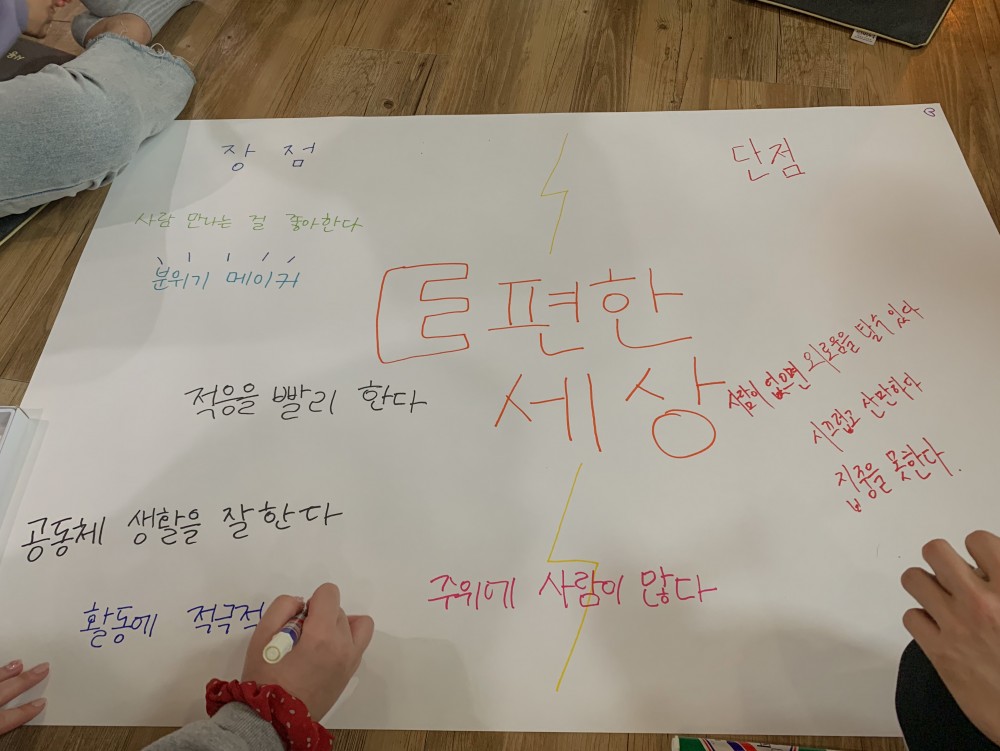 장 점
사람 만나는 걸 좋아한다
분위기 메이커
적응을 빨리 한다
공동체 생활을 잘한다
활동에 적극적
E 편한
세상
주위에 사람이 많다
단점
사람이 없으면 외로움을 탈수 있다
시끄럽고 산만하다
집중을 못한다.